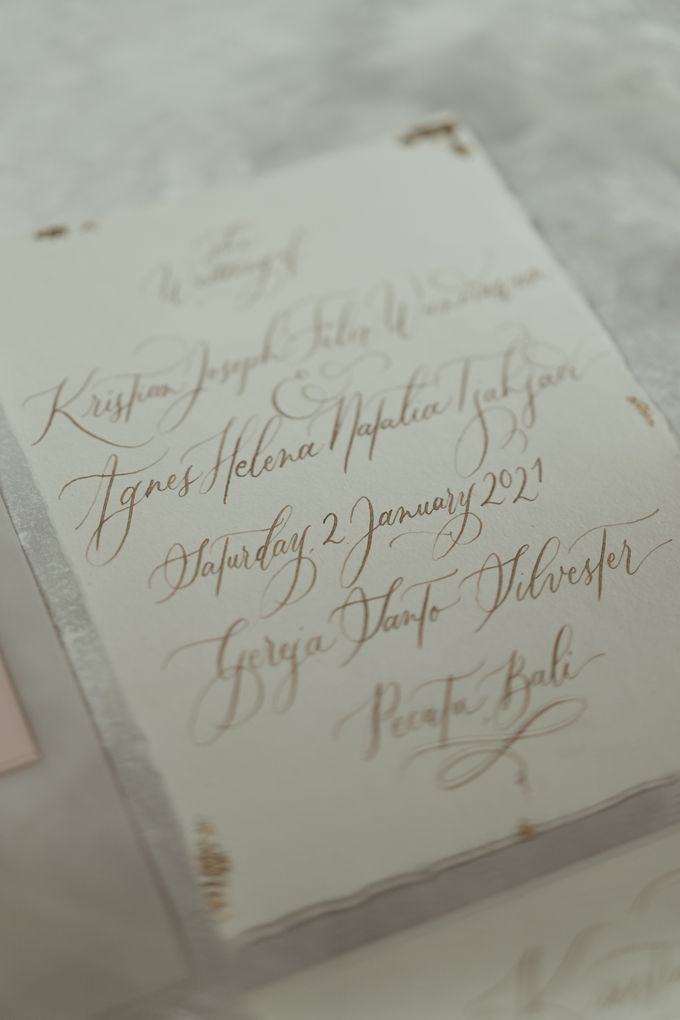 The
Wedding of
Kristian Joseph Felix
&
Agnes Helena Natalia Tjahjadi
Saturday, 2 January 2021
Gereja Santo Silvester
Pecatu, Bali